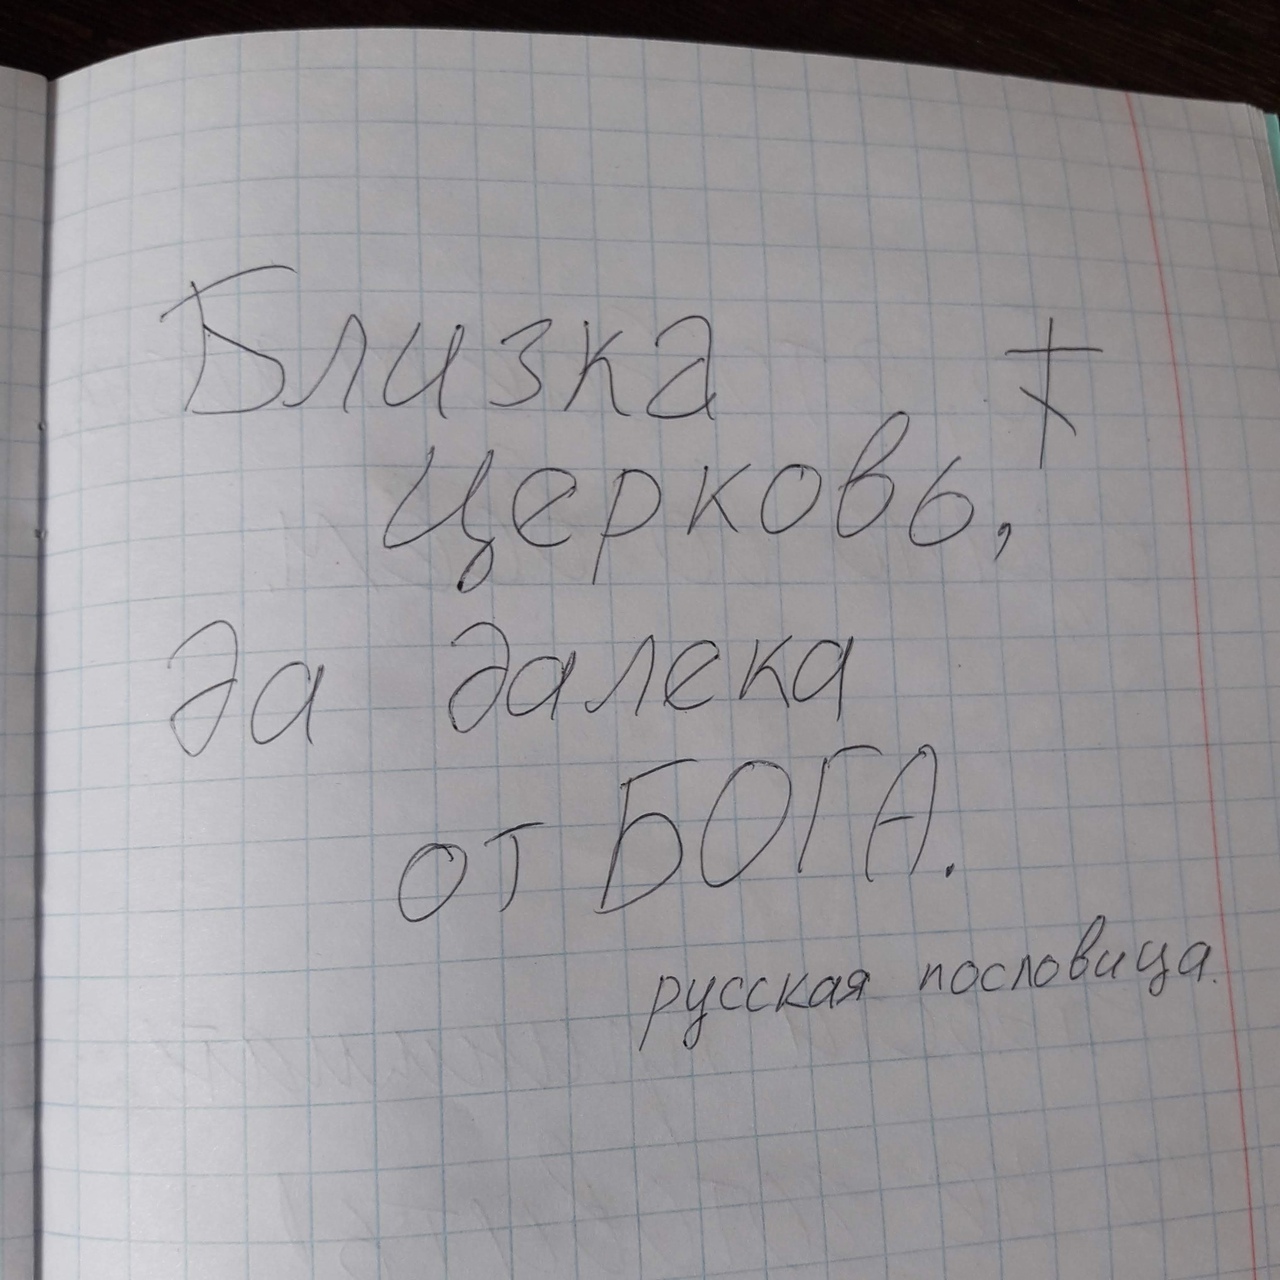 Близка
церковь,
да далека
от БОГА.
русская пословица.